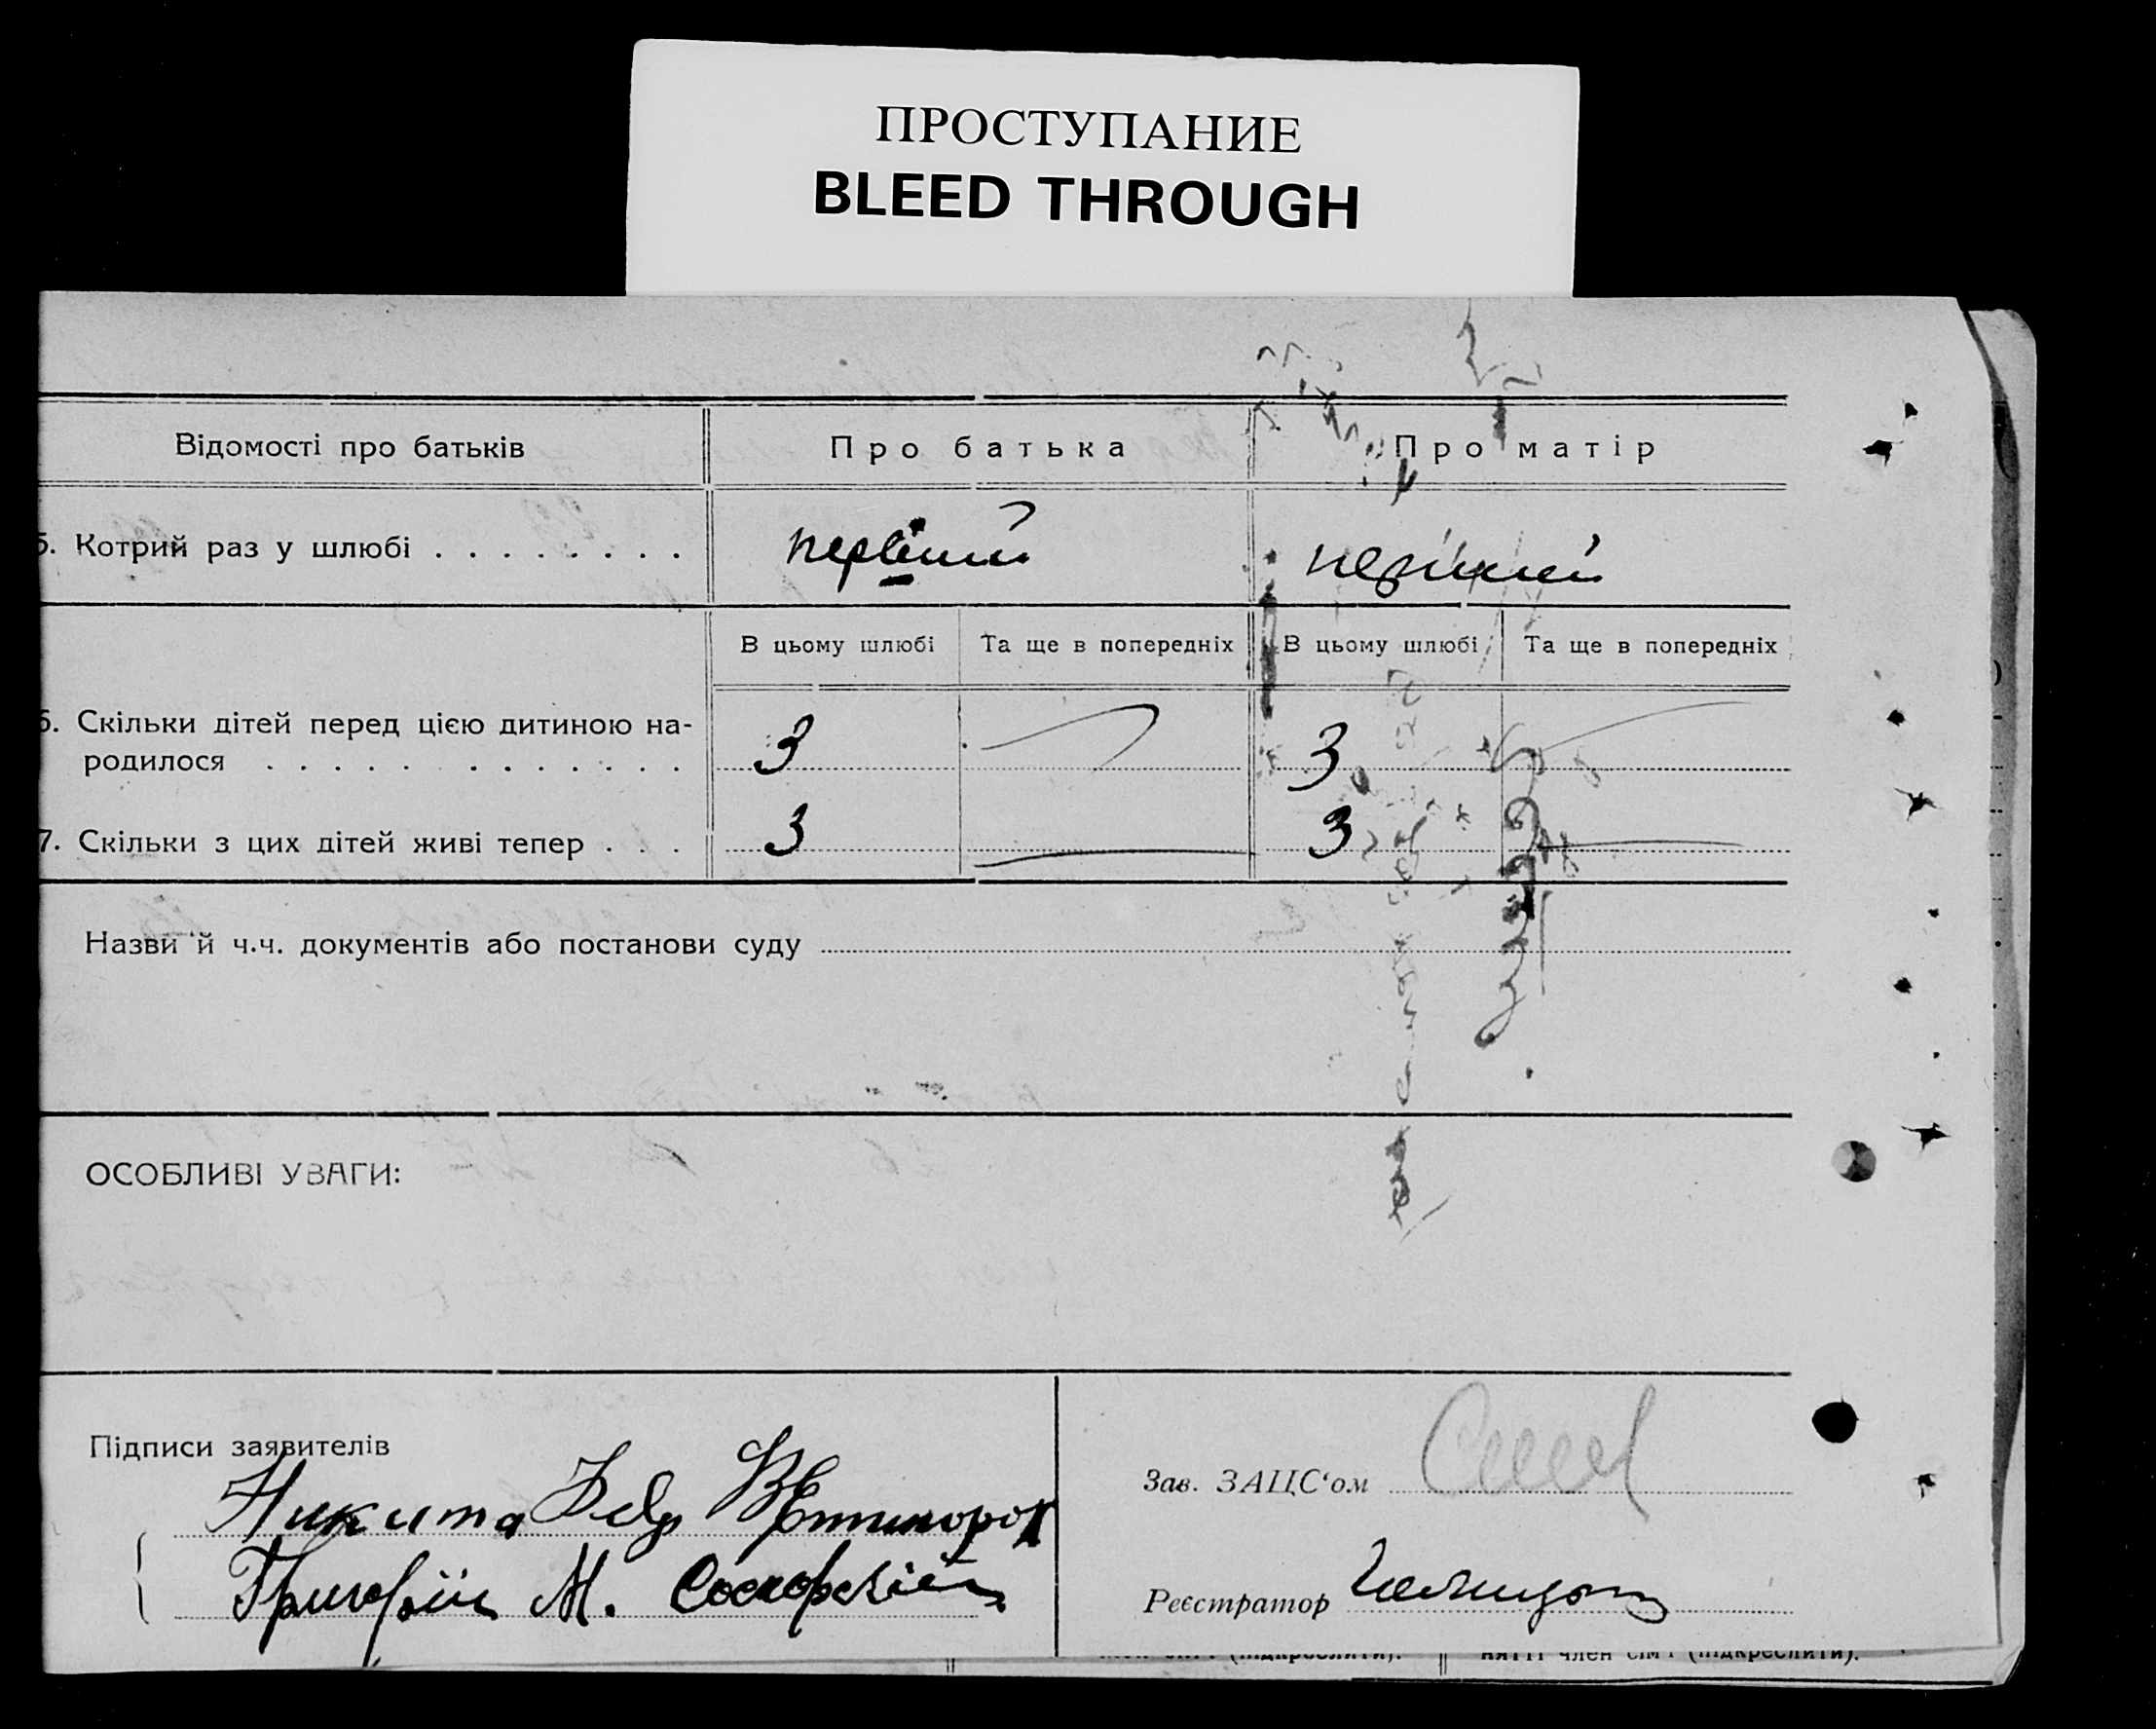 ПРОСТУПАНИЕ
BLEED THROUGH
Відомості про батьків
Про батька
Про матір
5. Котрий раз у шлюбі . . . . . . . .
первіший
перший
В цьому шлюбі
Та ще в попередніх
В цьому шлюбі
Та ще в попередніх
6. Скільки дітей перед цією дитиною на-
родилося . . . . . . . . . . . . .
3
3
7. Скільки з цих дітей живі тепер . . .
3
3
Назви й ч.ч. документів або постанови суду
ОСОБЛИВІ УВАГИ:
Підписи заявителів
Никита
Григорій М.
Зав. ЗАЦС‘ом
Реєстратор
(підкреслити).
няттї член сім'ї (підкреслити).